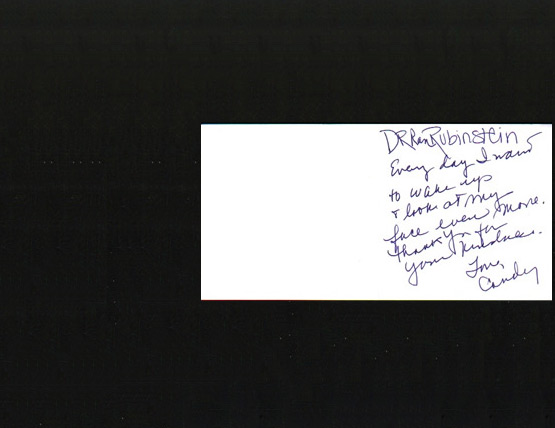 DR Ran Rubinstein
Every day I want
to wake up
& look at my
face even more.
Thank you for
your kindness.
Love,
Candy